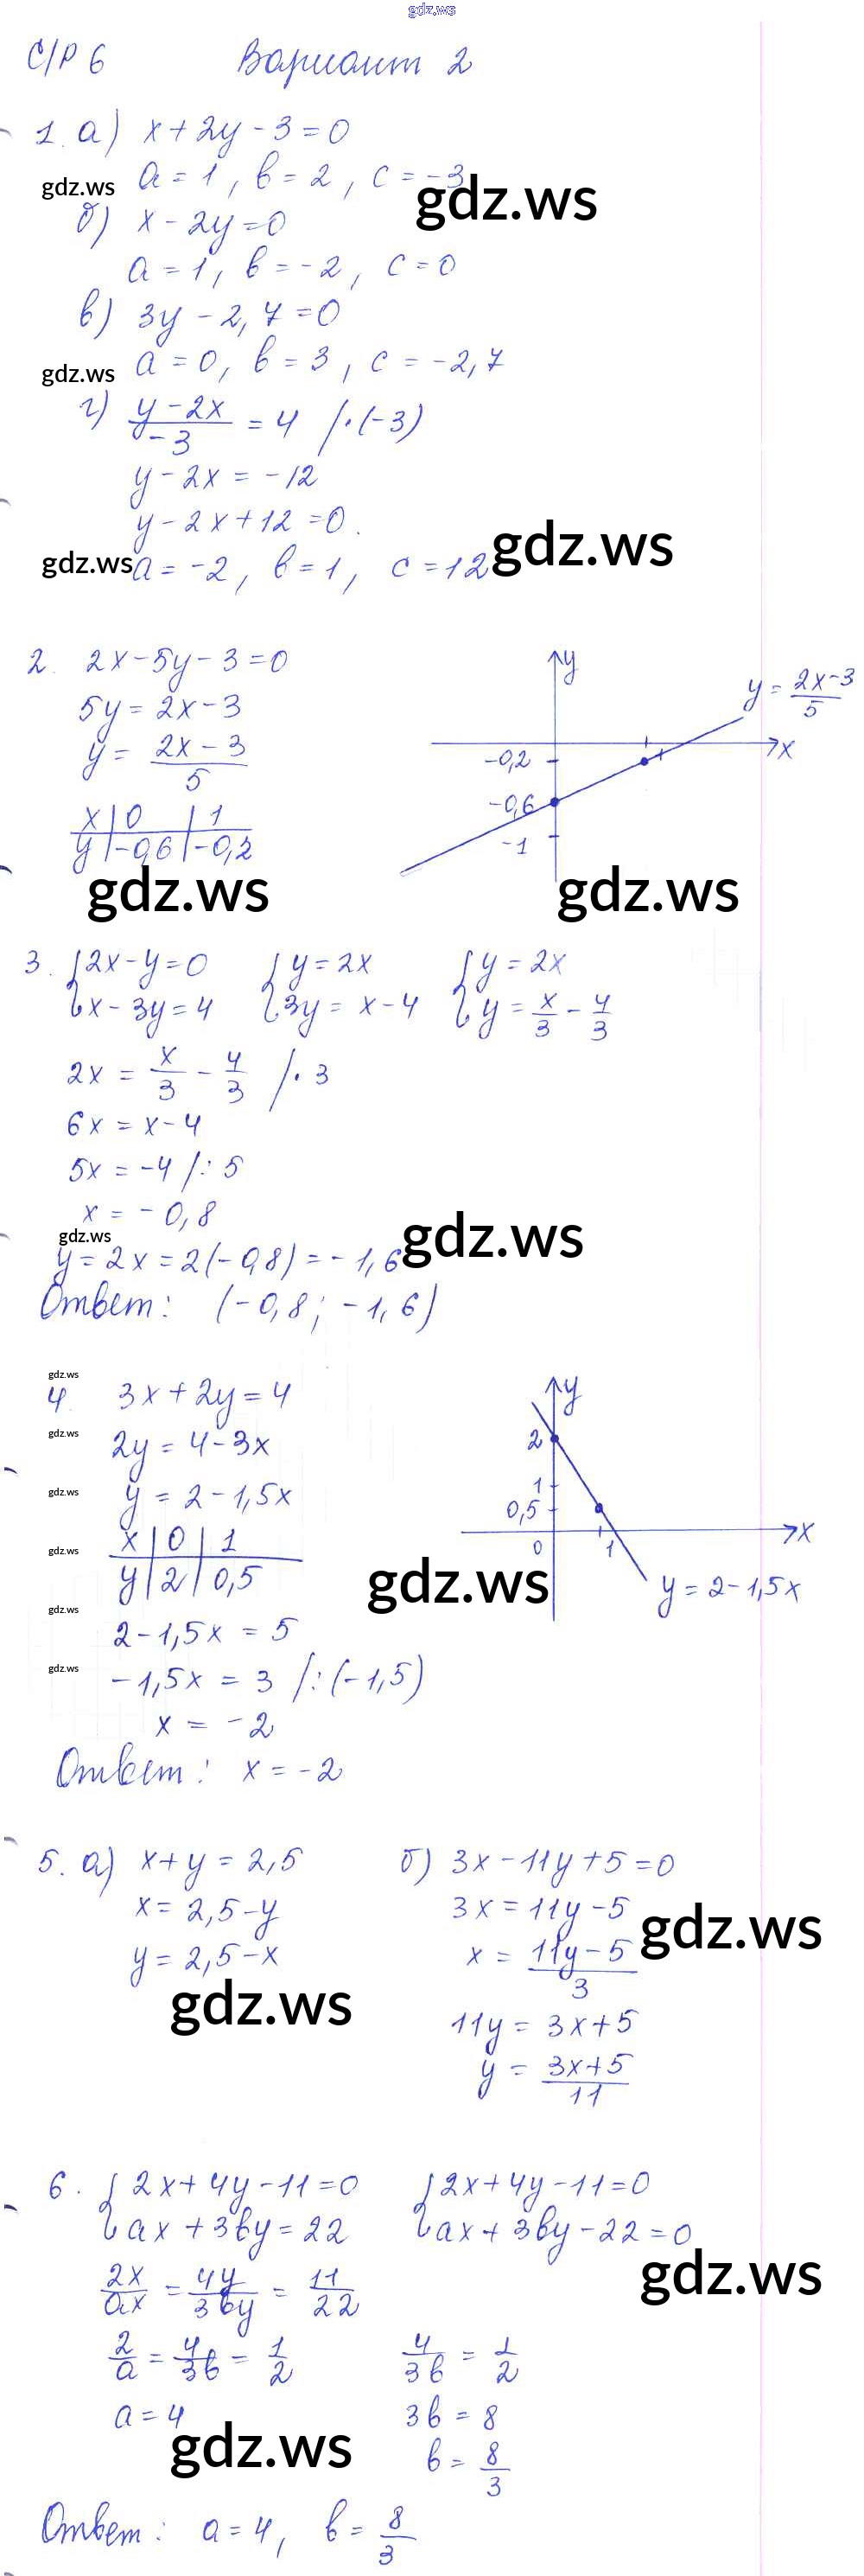 gdz.ws
С/Р 6 Вариант 2
1. а) x + 2y - 3 = 0
gdz.ws a = 1, b = 2, c = -3 gdz.ws
б) x - 2y = 0
a = 1, b = -2, c = 0
в) 3y - 2,7 = 0
gdz.ws a = 0, b = 3, c = -2,7
г) (y - 2x)/(-3) = 4 /·(-3)
y - 2x = -12
y - 2x + 12 = 0.
gdz.ws a = -2, b = 1, c = 12 gdz.ws
2. 2x - 5y - 3 = 0
5y = 2x - 3
y = (2x - 3)/5
x | 0 | 1
y | -0,6 | -0,2
y
y = (2x-3)/5
x
-0,2
-0,6
-1
gdz.ws gdz.ws
3. { 2x - y = 0 { y = 2x { y = 2x
{ x - 3y = 4 { 3y = x - 4 { y = x/3 - 4/3
2x = x/3 - 4/3 /· 3
6x = x - 4
5x = -4 /: 5
x = -0,8
gdz.ws gdz.ws
y = 2x = 2(-0,8) = -1,6
Ответ: (-0,8; -1,6)
gdz.ws
4. 3x + 2y = 4
gdz.ws
2y = 4 - 3x
gdz.ws
y = 2 - 1,5x
gdz.ws
x | 0 | 1
y | 2 | 0,5
y
2
1
0,5
0 1
x
y = 2 - 1,5x
gdz.ws
gdz.ws
2 - 1,5x = 5
gdz.ws
-1,5x = 3 /: (-1,5)
x = -2
Ответ: x = -2
5. а) x + y = 2,5
x = 2,5 - y
y = 2,5 - x
gdz.ws
б) 3x - 11y + 5 = 0
3x = 11y - 5
gdz.ws
x = (11y - 5)/3
11y = 3x + 5
y = (3x + 5)/11
6. { 2x + 4y - 11 = 0 { 2x + 4y - 11 = 0
{ ax + 3by = 22 { ax + 3by - 22 = 0
gdz.ws
2x/ax = 4y/3by = 11/22
2/a = 4/3b = 1/2 4/3b = 1/2
a = 4 3b = 8
gdz.ws b = 8/3
Ответ: a = 4, b = 8/3